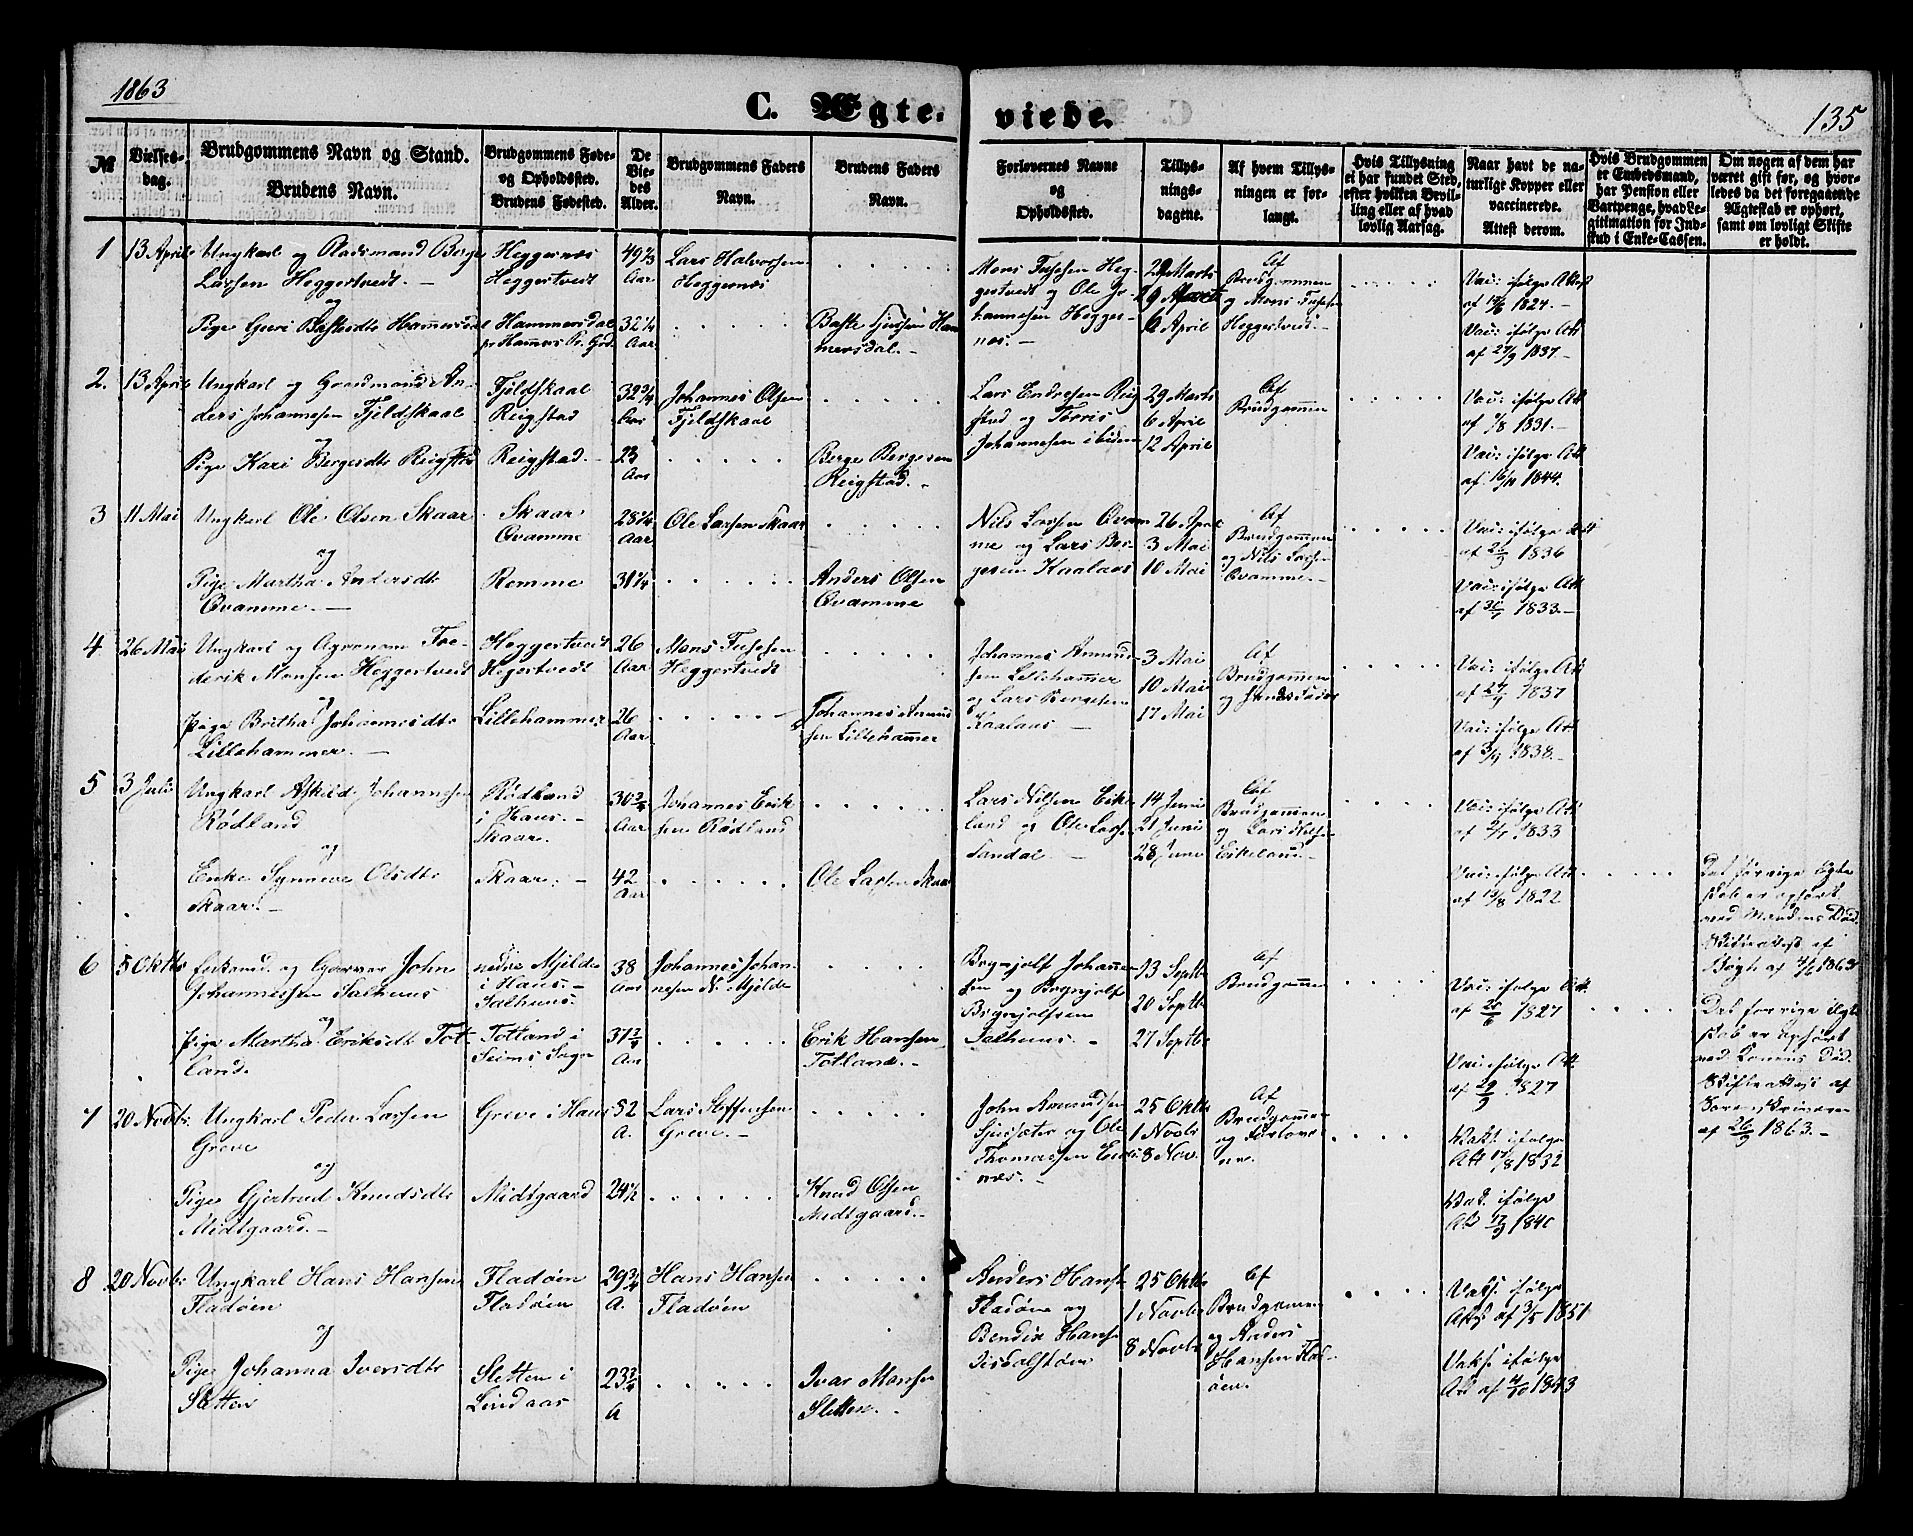 1863
C. Ægte-
viede.
C.
135
№
Vielses-
dag.
Brudgommens Navn og Stand.
Brudens Navn.
Brudgommens Føde-
og Opholdssted.
Brudens Fødested.
De
Vie-
des
Alder.
Brudgommens Faders
Navn.
Brudens Faders
Navn.
Forlovernes Navne
og
Opholdssted.
Tillys-
nings-
dagene.
Af hvem Tillys-
ningen er for-
langt.
Hvis Tillysning
ei har fundet Sted,
efter hvilken Bevil-
ling eller af hvad
lovlig Aarsag.
Naar havt de na-
turlige Kopper eller
vaccinerede.
Attest derom.
Hvis Brudgommen
er Embedsmand,
har Pension eller
Vartpenge, hvad Le-
gitimation for Ind-
skud i Enke-Cassen.
Om nogen af dem har
været gift før, og hvor-
ledes da det foregaaende
Ægteskab er ophørt,
samt om lovligt Skifte
er holdt.
1
13 April
Ungkarl og Pladsmand Berge
Larsen Heggertvedt. –
og
Pige Guri Bastesdtr Hammersdal
Heggernæs
Heggertvedt
Hammersdal
49 2/3
Aar
32 1/4
Aar
Lars Halvorsen
Heggernæs
Baste
Hammersdal. –
Mons Fusesen Heg-
gertvedt og Ole Jo-
hannesen Hegger-
næs. –
29 Marts
6 April
Af
Brudgommen
og Mons Fusesen
Heggertvedt. –
Vac: ifølge Attest
af 1824. –
Vac: ifølge Att
af 27/9 1837. –
2.
13 April
Ungkarl og Gaardmand An-
ders Johannesen Fjeldskaal
og
Pige Kari Bergesdtr Reigstad
Fjeldskaal
Reigstad
Reigstad. –
32 3/4
Aar
23
Aar
Johannes Olsen
Fjeldskaal
Berge Bergesen
Reigstad. –
Lars Endresen Reig
stad og Torris
Johannesen ibidem
29 Marts
6 April
12 April
Af
Brudgommen
Vac: ifølge Att
af 1/8 1831. –
Vac: ifølge Att
af 1844.
3
11 Mai
Ungkarl Ole Olsen Skaar
og
Pige Martha Andersdtr
Qvamme. –
Skaar
Qvamme
Romme
28 1/4
Aar
31 1/4
Ole Larsen Skaar
Anders Olsen
Qvamme
Nils Larsen Qvam
me og Lars Ber-
gesen Kaalaas
26 April
3 Mai
10 Mai
Af
Brudgommen
og Nils Larsen
Qvamme. –
Vac: ifølge Att
af 1836
Vac: ifølge Att
af 1833. –
4
26 Mai
Ungkarl og Agronom Fre-
derik Monsen Heggertvedt
og
Pige Britha Johannesdtr
Lillehammer. –
Heggertvedt
Hegertvedt
Lillehammer
26
Aar
26
Aar
Mons Fusesen
Heggertvedt
Johannes Amund
sen Lillehammer
Johannes Amund-
sen Lillehammer
og Lars Bergesen
Kaalaas –
3 Mai
10 Mai
17 Mai
Af
Brudgommen
og
Vac: ifølge Att
af 1837
Vac: ifølge Att
af 3/9 1838. –
5
3 Juli
Ungkarl Askild Johannesen
Rødland
og
Enke Synneve Olsdtr
Skaar. –
Rødland
i Haus. –
Skaar.
Skaar. –
30 3/4
Aar
42
Aar
Johannes Erik
sen Rødland
Ole Larsen Skaar
Lars Nilsen Eike
land og Ole Larsen
Sandal. –
14 Juni
21 Juni
28 Juni
Af
Brudgommen
og Lars Nilsen
Eikeland. –
Vac: ifølge Att
af 1833
Vac: ifølge Att
af 1822
Det forrige Ægte
skab er ophørt
ved Mandens Død
Skifteattest af
1863
6
5 Oktbr
Enkemd. og Garver John
Johannessen Salhuus
og
Pige Martha Eriksdtr Tot-
land.
nedre Mjelde
i Haus –
Salhuus.
Totland i
Seims Sogn
38
Aar
31 3/4
Aar
Johannes Johan-
nesen N. Mjelde
Erik Hansen
Totland. –
Brynjolf Johannes
sen og Brynjolf
Brynjolfsen
Salhuus. –
13 Septbr
20 Septbr
27 Septbr
Af
Brudgommen
Vac: ifølge Att.
af 1827
Vac: ifølge Att.
af 29/9 1827
Det forrige Ægte
skab er ophørt
ved Konens Død
Skifteattest af
Sorenskriveren
af 26/9 1863. –
7
20 Novbr.
Ungkarl Peder Larsen
Greve
og
Pige Gjertrud Knudsdtr
Midtgaard. –
Greve i Haus
Midtgaard
52
A.
24 1/2
Lars Steffensen
Greve. –
Knud Olsen
Midtgaard. –
John Amundsen
og Ole
Thomassen
næs. –
25 Oktbr
1 Novbr
8 Nov.
Af
Brudgommen
og Forlover
ne.
Vaks. ifølge
Att 1832
Vak. ifølge
Att 17/9 1840
8
20 Novbr
Ungkarl Hans Hansen
Fladøen
og
Pige Johanna Iversdtr
Sletten
Fladøen
Fladøen
Sletten i
Lindaas
29 3/4
A.
23 3/4
A
Hans Hansen
Fladøen
Ivar Monsen
Sletten. –
Anders Hans
Fladøen og
Bendix Hans
25 Oktbr
1 Novbr
8 Novbr
Af
Brudgommen
og Anders
Hansen Flad-
øen.
Vaks. ifølge
Att af 3/5 1851
Vaks. ifølge
Att af 4/10 1843